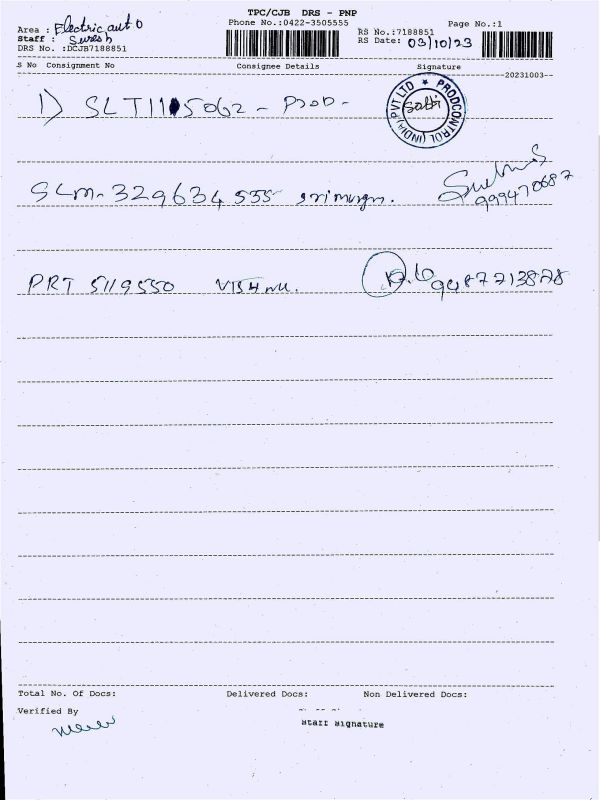 TPC/CJB DRS - PNP
Area : Electric auto Phone No.:0422-3505555 RS No.:7188851 Page No.:1
Staff : Suresh RS Date: 03/10/23
DRS No. :DCJB7188851
S No Consignment No Consignee Details Signature
20231003--
1) SLT1115062 - Prod - PRODCONTROL (INDIA) PVT LTD
SLM-329634555 9994710687
PRT 5119550 Vishnu. 9487713878
Total No. Of Docs: Delivered Docs: Non Delivered Docs:
Verified By
Staff Signature